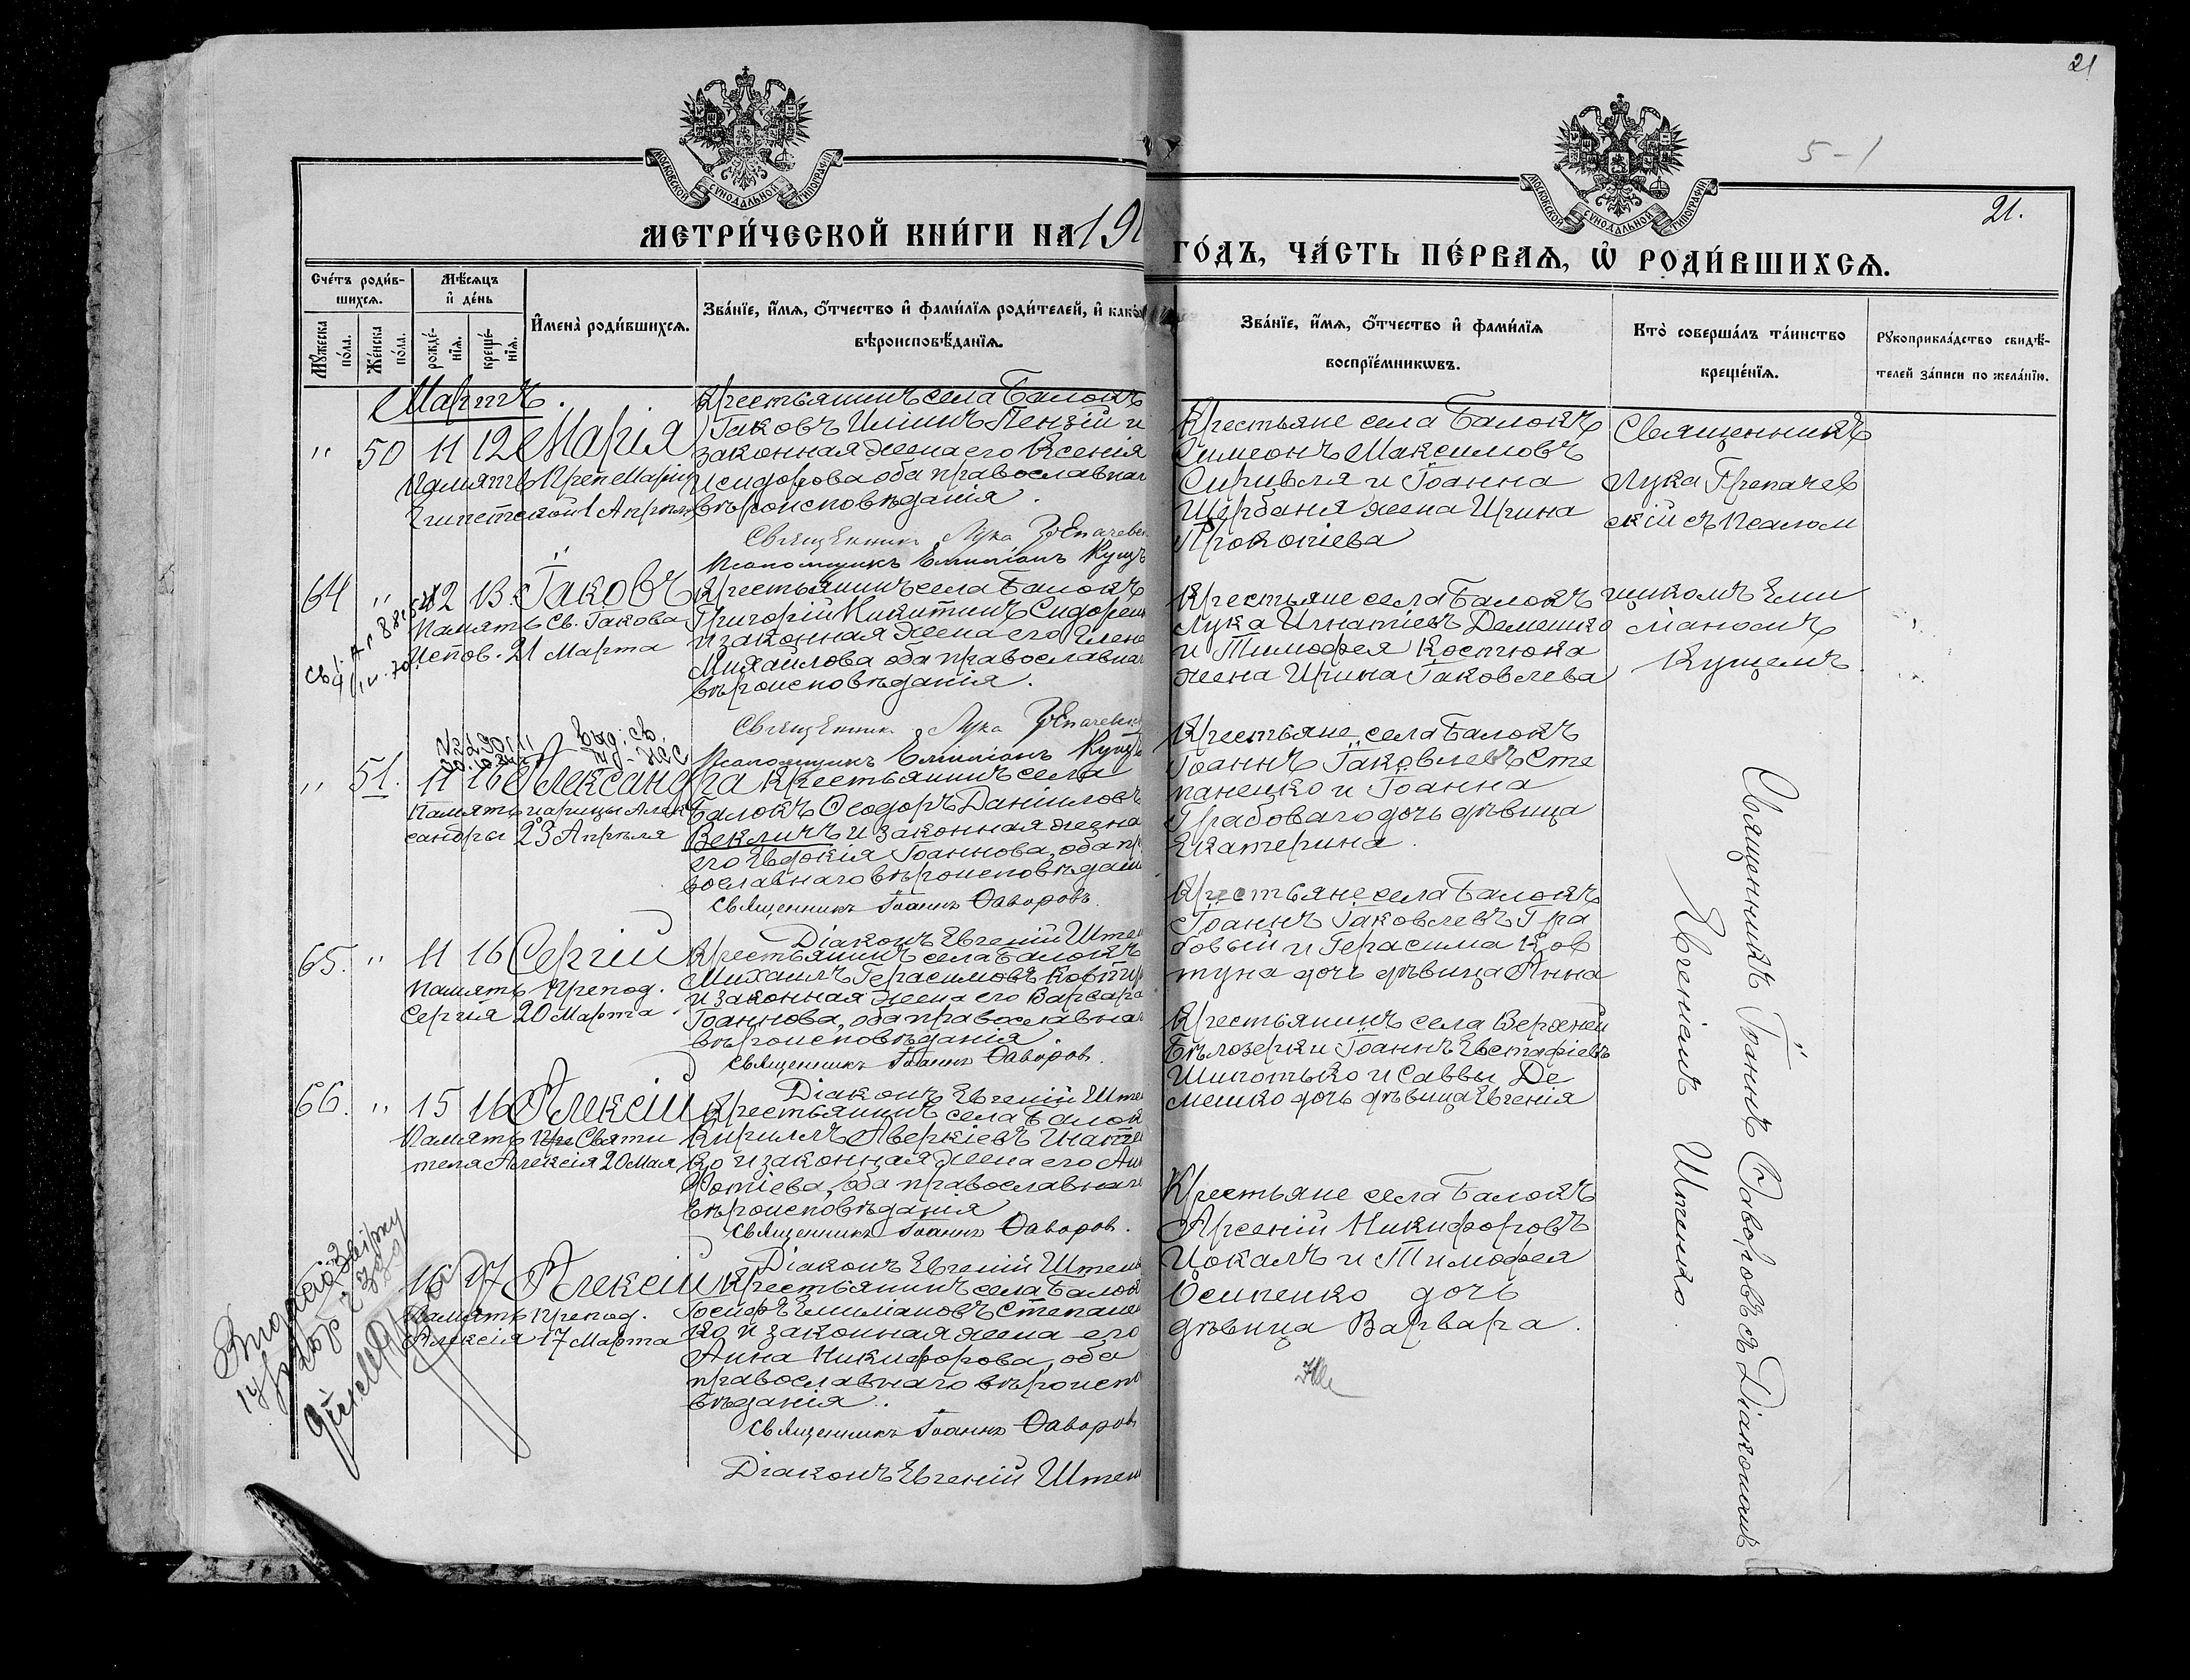 21
5-1
21.
МОСКОВСКОЙ СѴНОДАЛЬНОЙ ТИПОГРАФІИ
МОСКОВСКОЙ СѴНОДАЛЬНОЙ ТИПОГРАФІИ
МЕТРИ́ЧЕСКОЙ КНИ́ГИ НА 19
ГО́ДЪ, ЧА́СТЬ ПЕ́РВАѦ, Ѡ҆ РОДИ́ВШИХСѦ.
Сче́тъ роди́в-
шихсѧ.
Мꙋ́жеска
по́ла.
Же́нска
по́ла.
Мѣ́сѧцъ
и҆ де́нь
рожде́-
нїѧ.
креще́-
нїѧ.
И҆мена̀ роди́вшихсѧ.
Зва́нїе, и҆́мѧ, ѻ҆́тчество и҆ фами́лїѧ роди́телей, и҆ како́
вѣроисповѣ́данїѧ.
Зва́нїе, и҆́мѧ, ѻ҆́тчество и҆ фами́лїѧ
воспрїе́мникѡвъ.
Кто̀ соверша́лъ та́инство
креще́нїѧ.
Рꙋкоприкла́дство свидѣ́-
телей за́писи по жела́нїю.
Мартъ.
" 50 11 12 Марія
Память Преп Маріи
Египетской 1 Апрѣля
Крестьянинъ села Балокъ
Іаковъ Илінъ Пензій и
законная жена его Ксенія
Исидорова оба православнаг
вѣроисповѣданія.
Священникъ Лука
Псаломщикъ Емиліанъ Кущъ
Крестьяне села Балокъ
Симеонъ Максимовъ
и Іоанна
Щербаня жена Ирина
Прокопіева
Священникъ
Лука
скій съ Псалом
щикомъ Еми
ліаномъ
Кущемъ
64 " 12 13 Іаковъ
Память Св. Іакова
Испов. 21 Марта
Крестьянинъ села Балокъ
Григорій Никитинъ Сидорен
и законная жена его Елена
Михаилова оба православнаг
вѣроисповѣданія.
Священникъ Лука
Псаломщикъ Емиліанъ Кущъ
Крестьяне села Балокъ
Лука Игнатіевъ Демешко
и Тимофея Костюка
жена Ирина Іаковлева
" 51. 11 16 Александра
Память царицы Алек
сандры 23 Апрѣля
Крестьянинъ села
Балокъ Ѳеодоръ Даніиловъ
Векличъ и законная жена
его Евдокія Іоаннова, оба пр
вославнаго вѣроисповѣдані
Священникъ Іоаннъ Ѳаворовъ.
Діаконъ Евгеній Штен
Крестьяне села Балокъ
Іоаннъ Іаковлевъ Сте
паненко и Іоанна
Грабоваго дочь дѣвица
Екатерина.
65. " 11 16 Сергій
Память Препод.
Сергія 20 Марта
Крестьянинъ села Балокъ
Михаилъ Герасимовъ Ковту
и законная жена его Варвара
Іоаннова, оба православна
вѣроисповѣданія.
Священникъ Іоаннъ Ѳаворов.
Діаконъ Евгеній Штен
Крестьяне села Балокъ
Іоаннъ Іаковлевъ Гра
бовый и Герасима Ков
туна дочь дѣвица Анна
66. " 15 16 Алексій
Память Святи
теля Алексія 20 Мая
Крестьянинъ села Балок
Кириллъ Аверкіевъ Игнате
ко и законная жена его Ан
Фотіева, оба православнаг
вѣроисповѣданія
Священникъ Іоаннъ Ѳаворов.
Діаконъ Евгеній Штен
Крестьянинъ села Верхней
Бѣлозерки Іоаннъ Евстафіевъ
Шипотько и Саввы Де
мешко дочь дѣвица Евгенія
16 17 Алексій
Память Препод.
Алексія 17 Марта
Крестьянинъ села Балок
Іосифъ Емиліановъ Степанен
ко и законная жена его
Анна Никифорова, оба
православнаго вѣроиспо
вѣданія.
Священникъ Іоаннъ Ѳаворов
Діаконъ Евгеній Штен
Крестьяне села Балокъ
Арсеній Никифоровъ
Цокалъ и Тимофея
Осипенко дочь
дѣвица Варвара.
Священникъ Іоаннъ Ѳаворовъ съ Діакономъ
Евгеніемъ Штенко.